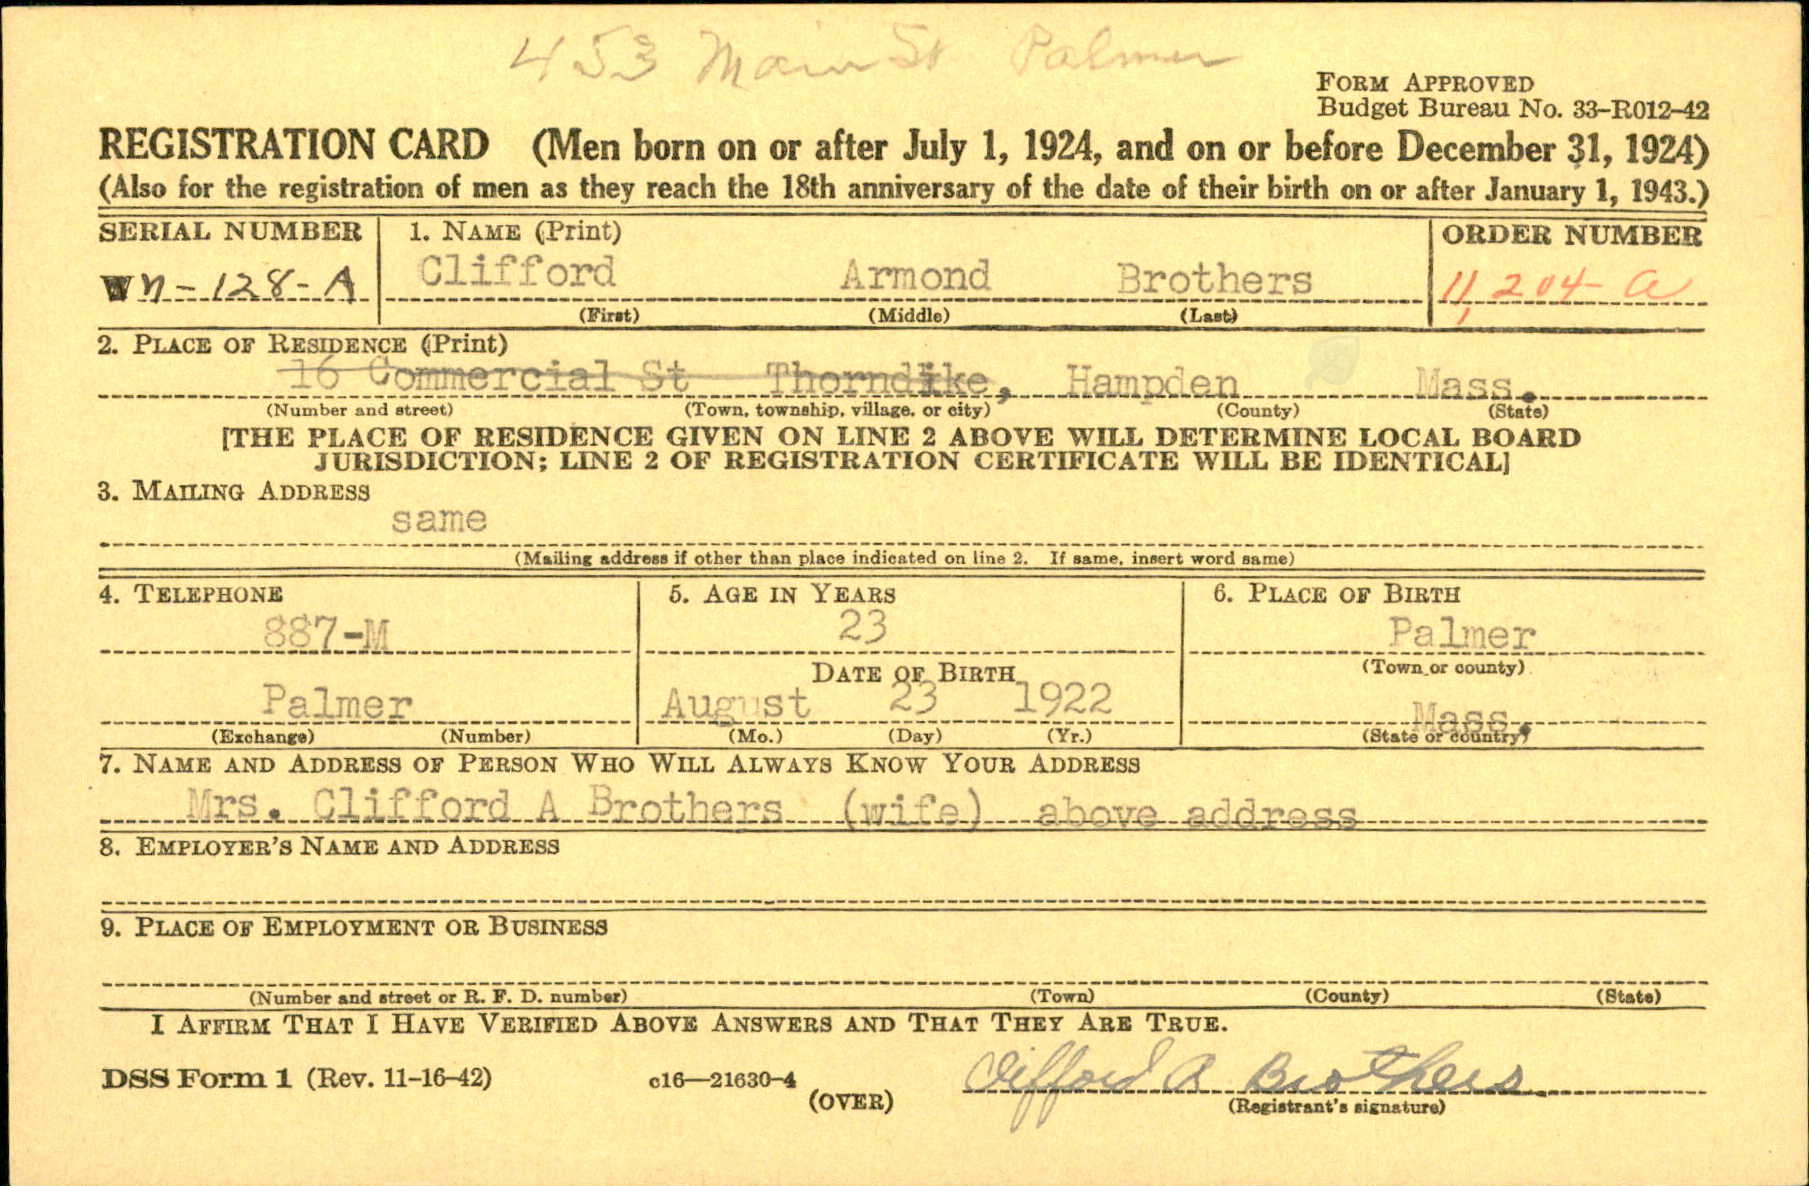 453 Main St Palmer
FORM APPROVED
Budget Bureau No. 33–R012–42
REGISTRATION CARD (Men born on or after July 1, 1924, and on or before December 31, 1924)
(Also for the registration of men as they reach the 18th anniversary of the date of their birth on or after January 1, 1943.)
SERIAL NUMBER 1. NAME (Print) ORDER NUMBER
Wn-128-A Clifford Armond Brothers 11,204-A
(First) (Middle) (Last)
2. PLACE OF RESIDENCE (Print)
16 Commercial St Thorndike, Hampden Mass.
(Number and street) (Town, township, village, or city) (County) (State)
[THE PLACE OF RESIDENCE GIVEN ON LINE 2 ABOVE WILL DETERMINE LOCAL BOARD
JURISDICTION; LINE 2 OF REGISTRATION CERTIFICATE WILL BE IDENTICAL]
3. MAILING ADDRESS
same
(Mailing address if other than place indicated on line 2. If same, insert word same)
4. TELEPHONE 5. AGE IN YEARS 6. PLACE OF BIRTH
887-M 23 Palmer
DATE OF BIRTH (Town or county)
Palmer August 23 1922 Mass.
(Exchange) (Number) (Mo.) (Day) (Yr.) (State or country)
7. NAME AND ADDRESS OF PERSON WHO WILL ALWAYS KNOW YOUR ADDRESS
Mrs. Clifford A Brothers (wife) above address
8. EMPLOYER'S NAME AND ADDRESS
9. PLACE OF EMPLOYMENT OR BUSINESS
(Number and street or R. F. D. number) (Town) (County) (State)
I AFFIRM THAT I HAVE VERIFIED ABOVE ANSWERS AND THAT THEY ARE TRUE.
DSS Form 1 (Rev. 11–16–42) c16—21630-4 Clifford A Brothers
(OVER) (Registrant's signature)